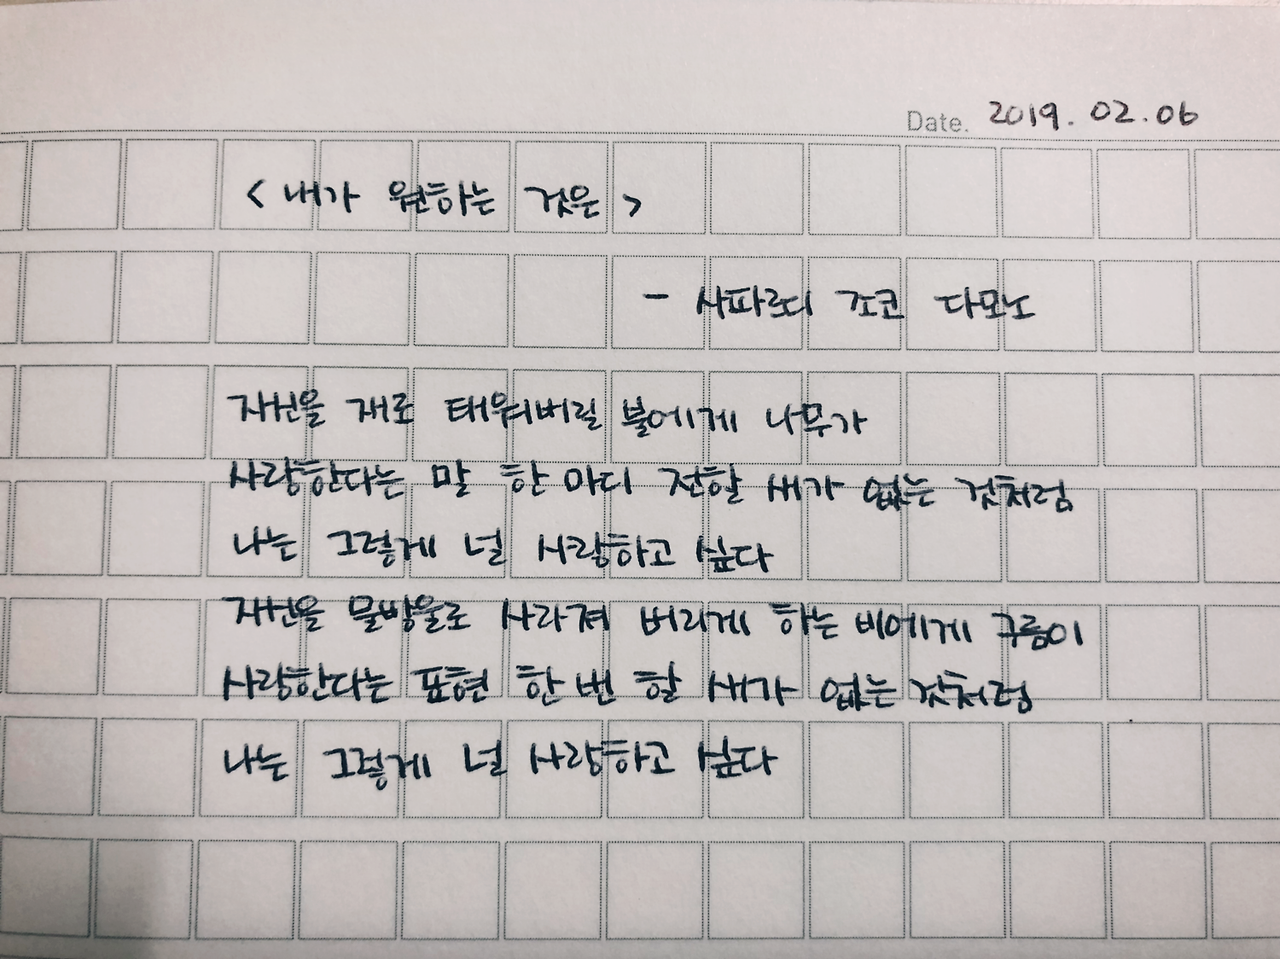 Date. 2019. 02. 06
< 내가 원하는 것은 >
- 사파르디 조코 다모노
자신을 재로 태워버릴 불에게 나무가
사랑한다는 말 한 마디 전할 새가 없는 것처럼
나는 그렇게 널 사랑하고 싶다
자신을 물방울로 사라져 버리게 하는 비에게 구름이
사랑한다는 표현 한 번 할 새가 없는 것처럼
나는 그렇게 널 사랑하고 싶다